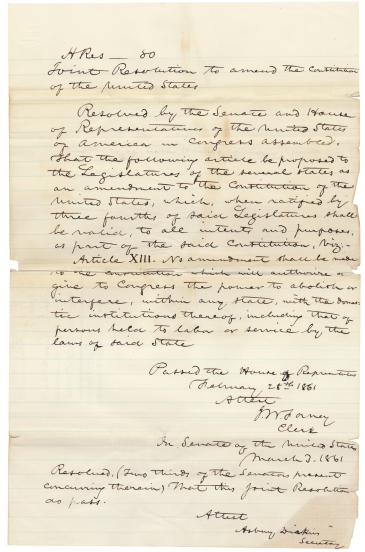 H Res — 80
Joint Resolution to amend the Constitution
of the United States
Resolved by the Senate and House
of Representatives of the United States
of America in Congress assembled,
That the following article be proposed to
the Legislatures of the several states as
an amendment to the Constitution of the
United States, which, when ratified by
three fourths of said Legislatures shall
be valid, to all intents and purposes,
as part of the said Constitution, viz –
Article XIII. No amendment shall be made
to the Constitution which will authorize or
give to Congress the power to abolish or
interfere, within any state, with the domes-
tic institutions thereof, including that of
persons held to labor or service by the
laws of said State
Passed the House of Representatives
February 28th 1861
Attest
J W Forney
Clerk
In Senate of the United States
March 2. 1861
Resolved, (two thirds of the Senators present
concurring therein) That this Joint Resolution
do pass.
Attest
Asbury Dickins
Secretary